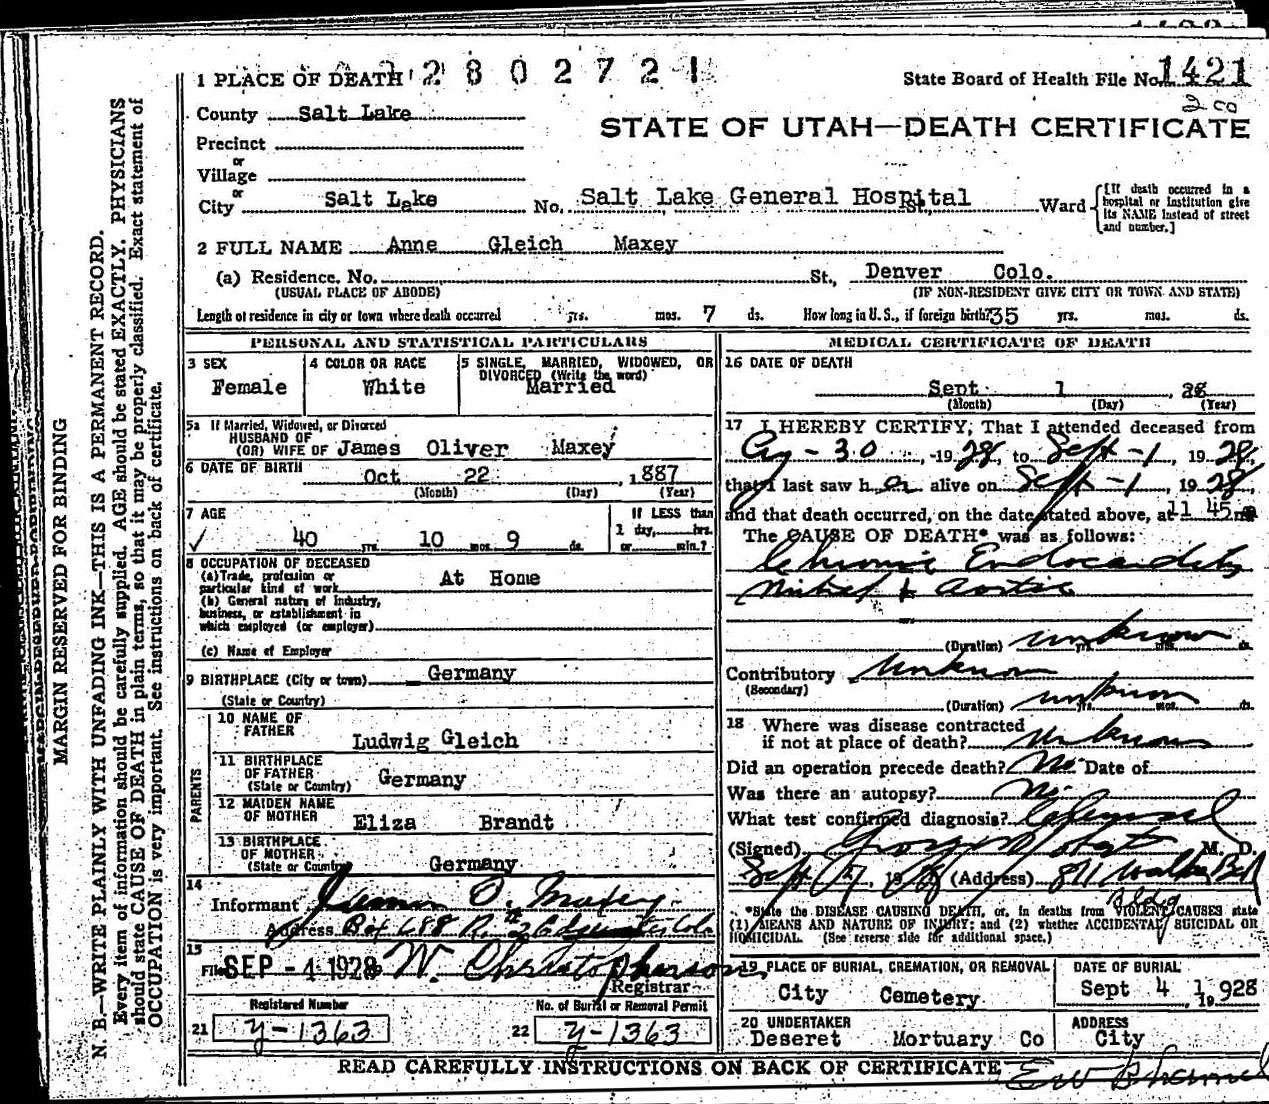 1 PLACE OF DEATH 2 8 0 2 7 2 1
State Board of Health File No. 1421
County Salt Lake
STATE OF UTAH—DEATH CERTIFICATE
Precinct
or
Village
or
City Salt Lake No. Salt Lake General Hospital St., Ward
[If death occurred in a
hospital or institution give
its NAME instead of street
and number.]
2 FULL NAME Anne Gleich Maxey
(a) Residence. No. St., Denver Colo.
(USUAL PLACE OF ABODE) (IF NON-RESIDENT GIVE CITY OR TOWN AND STATE)
Length of residence in city or town where death occurred yrs. mos. 7 ds. How long in U. S., if foreign birth? 35 yrs. mos. ds.
PERSONAL AND STATISTICAL PARTICULARS
3 SEX
Female
4 COLOR OR RACE
White
5 SINGLE, MARRIED, WIDOWED, OR
DIVORCED (Write the word)
Married
5a If Married, Widowed, or Divorced
HUSBAND OF
(OR) WIFE OF James Oliver Maxey
6 DATE OF BIRTH
Oct 22, 1887
(Month) (Day) (Year)
7 AGE
40 yrs. 10 mos. 9 ds.
If LESS than
1 day, hrs.
or min.?
8 OCCUPATION OF DECEASED
(a) Trade, profession or
particular kind of work At Home
(b) General nature of Industry,
business, or establishment in
which employed (or employer)
(c) Name of Employer
9 BIRTHPLACE (City or town) Germany
(State or Country)
PARENTS
10 NAME OF
FATHER
Ludwig Gleich
11 BIRTHPLACE
OF FATHER
(State or Country) Germany
12 MAIDEN NAME
OF MOTHER Eliza Brandt
13 BIRTHPLACE
OF MOTHER
(State or Country) Germany
14
Informant James O. Maxey
Address Box 688 R. 2 Edgewater Colo
15
Filed SEP - 4 1928 W. Christopherson
Registrar
Registered Number
21 y-1363
No. of Burial or Removal Permit
22 y-1363
MEDICAL CERTIFICATE OF DEATH
16 DATE OF DEATH
Sept 1, 28
(Month) (Day) (Year)
17 I HEREBY CERTIFY, That I attended deceased from
Aug - 30, 1928, to Sept - 1, 1928,
that I last saw h er alive on Sept - 1, 1928,
and that death occurred, on the date stated above, at 11 45 m
The CAUSE OF DEATH* was as follows:
Chronic Endocarditis
Mitral & Aortic
(Duration) unknown yrs. mos. ds.
Contributory unknown
(Secondary)
(Duration) unknown yrs. mos. ds.
18 Where was disease contracted
if not at place of death? unknown
Did an operation precede death? No Date of
Was there an autopsy? No.
What test confirmed diagnosis?
(Signed) M. D.
Sept, 19 28 (Address) 811 Walker Bk
Bldg
*State the DISEASE CAUSING DEATH, or, in deaths from VIOLENT CAUSES state
(1) MEANS AND NATURE OF INJURY; and (2) whether ACCIDENTAL, SUICIDAL OR
HOMICIDAL. (See reverse side for additional space.)
19 PLACE OF BURIAL, CREMATION, OR REMOVAL
City Cemetery
DATE OF BURIAL
Sept 4, 1928
20 UNDERTAKER
Deseret Mortuary Co
ADDRESS
City
READ CAREFULLY INSTRUCTIONS ON BACK OF CERTIFICATE
MARGIN RESERVED FOR BINDING
N. B.—WRITE PLAINLY WITH UNFADING INK—THIS IS A PERMANENT RECORD.
Every item of information should be carefully supplied. AGE should be stated EXACTLY. PHYSICIANS
should state CAUSE OF DEATH in plain terms, so that it may be properly classified. Exact statement of
OCCUPATION is very important. See instructions on back of certificate.